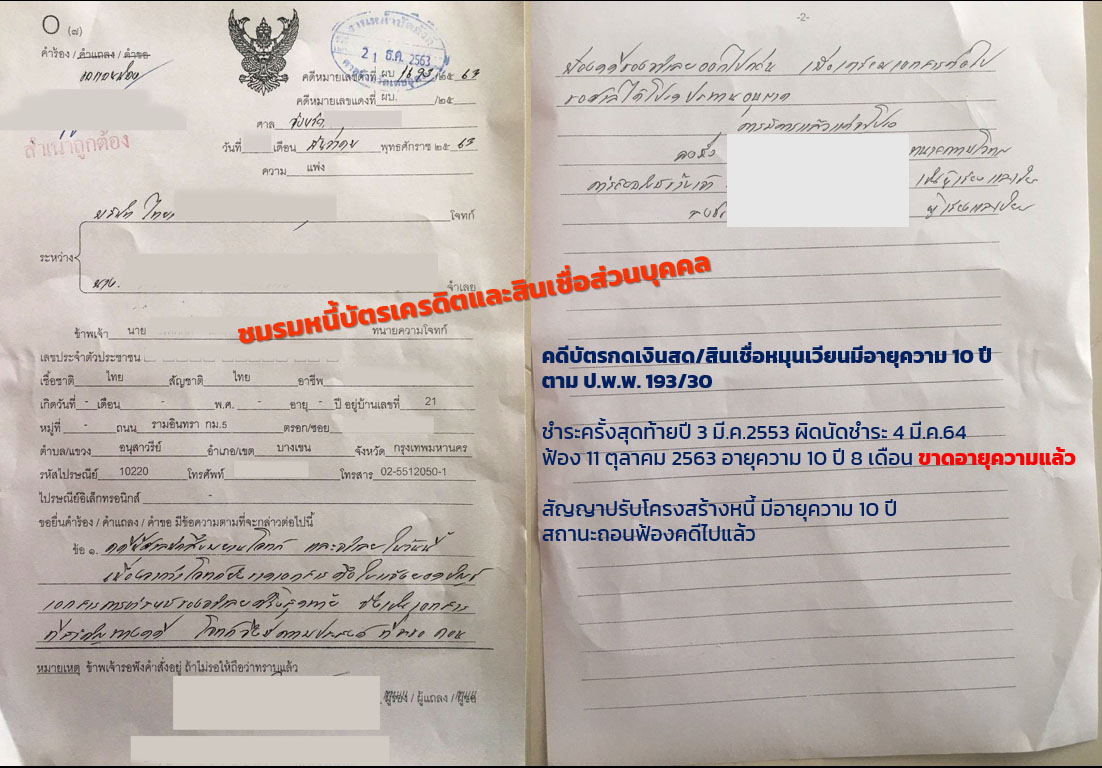 (๗)
คำร้อง / คำแถลง / คำขอ
ขอถอนฟ้อง
สำเนาถูกต้อง
21 ธ.ค. 2563
คดีหมายเลขดำที่ ผบ /๒๕ 63
คดีหมายเลขแดงที่ ผบ. /๒๕
ศาล
วันที่ เดือน ธันวาคม พุทธศักราช ๒๕ 63
ความ แพ่ง
บริษัท ไทย โจทก์
ระหว่าง
นาง. จำเลย
ชมรมหนี้บัตรเครดิตและสินเชื่อส่วนบุคคล
ข้าพเจ้า นาย ทนายความโจทก์
เลขประจำตัวประชาชน
เชื้อชาติ ไทย สัญชาติ ไทย อาชีพ
เกิดวันที่ - เดือน - พ.ศ. - อายุ - ปี อยู่บ้านเลขที่ 21
หมู่ที่ - ถนน รามอินทรา กม.5 ตรอก/ซอย
ตำบล/แขวง อนุสาวรีย์ อำเภอ/เขต บางเขน จังหวัด กรุงเทพมหานคร
รหัสไปรษณีย์ 10220 โทรศัพท์ โทรสาร 02-5512050-1
ไปรษณีย์อิเล็กทรอนิกส์ -
ขอยื่นคำร้อง / คำแถลง / คำขอ มีข้อความตามที่จะกล่าวต่อไปนี้
ข้อ ๑. คดีนี้ศาลนัดสืบพยานโจทก์ และจำเลย ในวันนี้
เนื่องจากว่าโจทก์ยังขาดเอกสาร
เอกสารการชำระของจำเลยครั้งสุดท้าย ซึ่งเป็นเอกสาร
ที่สำคัญทางคดี โจทก์จึงมีความประสงค์ ที่จะขอ ถอน
หมายเหตุ ข้าพเจ้ารอฟังคำสั่งอยู่ ถ้าไม่รอให้ถือว่าทราบแล้ว
ผู้ร้อง / ผู้แถลง / ผู้ขอ
-2-
ฟ้องคดีของจำเลยออกไปก่อน เพื่อเตรียมเอกสารต่อไป
ขอศาลได้โปรดประทานอนุญาต
ควรมิควรแล้วแต่จะโปรด
ลงชื่อ ทนายความโจทก์
เป็นผู้เรียงและเขียน
ลงชื่อ ผู้เรียงและเขียน
คดีบัตรกดเงินสด/สินเชื่อหมุนเวียนมีอายุความ 10 ปี
ตาม ป.พ.พ. 193/30
ชำระครั้งสุดท้ายปี 3 มี.ค.2553 ผิดนัดชำระ 4 มี.ค.64
ฟ้อง 11 ตุลาคม 2563 อายุความ 10 ปี 8 เดือน ขาดอายุความแล้ว
สัญญาปรับโครงสร้างหนี้ มีอายุความ 10 ปี
สถานะถอนฟ้องคดีไปแล้ว